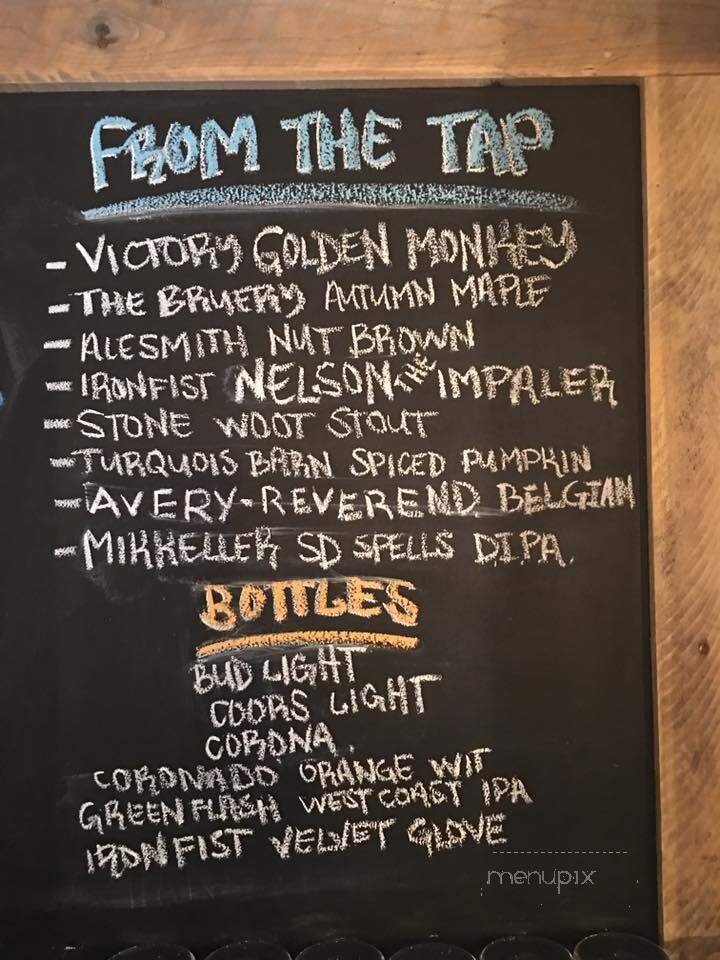 FROM THE TAP
- VICTORY GOLDEN MONKEY
- THE BRUERY AUTUMN MAPLE
- ALESMITH NUT BROWN
- IRONFIST NELSON THE IMPALER
- STONE WOOT STOUT
- TURQUOIS BARN SPICED PUMPKIN
- AVERY-REVEREND BELGIAN
- MIKKELLER SD SPELLS D.I.P.A.
BOTTLES
BUD LIGHT
COORS LIGHT
CORONA.
CORONADO ORANGE WIT
GREEN FLASH WEST COAST IPA
IRON FIST VELVET GLOVE
menupix